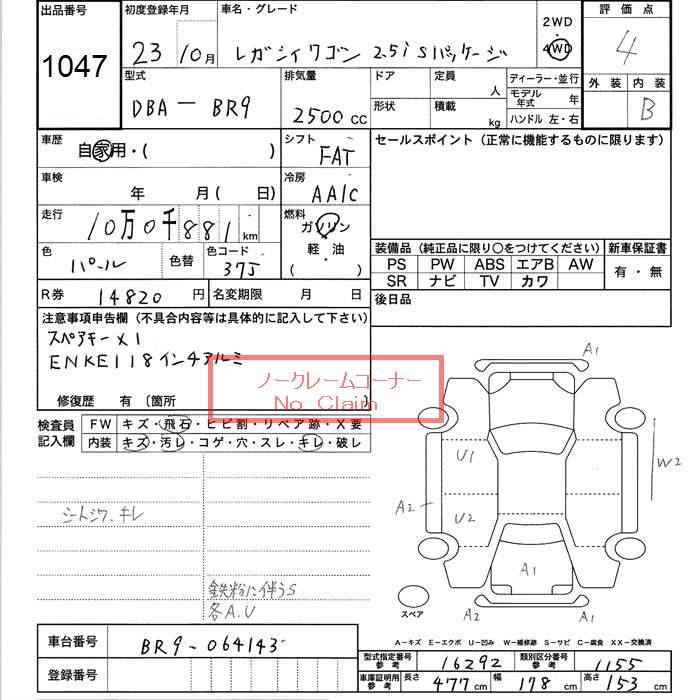 出品番号
1047
初度登録年月
23 10月
車名・グレード
レガシィワゴン 2.5i Sパッケージ
2WD
4WD
評価点
4
外装 内装
B
型式
DBA - BR9
排気量
2500 CC
ドア
定員
人
形状
積載
kg
ディーラー・並行
モデル年式 年
ハンドル 左・右
車歴
自家用・( )
シフト
FAT
セールスポイント（正常に機能するものに限ります）
車検
年 月 ( 日)
冷房
AAC
走行
10万0千881 km
燃料
ガソリン
軽・油
( )
色
パール
色替
色コード
37J
装備品（純正品に限り○をつけてください）
新車保証書
PS PW ABS エアB AW
SR ナビ TV カワ
有・無
R券 14820 円
名変期限 月 日
後日品
注意事項申告欄（不具合内容等は具体的に記入して下さい）
スペアキーX1
ENKEI18インチアルミ
修復歴 有〔箇所
ノークレームコーナー
No Claim
検査員
記入欄
FW キズ・飛石・ヒビ割・リペア跡・X要
内装 キズ・汚レ・コゲ・穴・スレ・キレ・破レ
シートシワ.キレ
鉄粉に伴うS
各A.U
A1
U1
W2
A2
U2
A1
スペア
A2
A1
A-キズ E-エクボ U-凹み W-補修跡 S-サビ C-腐食 XX-交換済
車台番号
BR9-064143
登録番号
型式指定番号
参考
16292
類別区分番号
参考
1155
車庫証明用
参考
長さ 477cm
幅 178cm
高さ 153cm